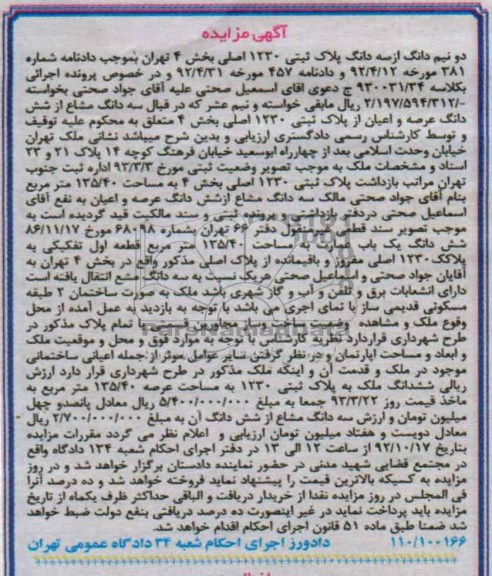 آگهی مزایده
دو نیم دانگ ازسه دانگ پلاک ثبتی ۱۲۳۰ اصلی بخش ۴ تهران بموجب دادنامه شماره
۳۸۱ مورخه ۹۲/۴/۱۲ و دادنامه ۴۵۷ مورخه ۹۲/۴/۳۱ و در خصوص پرونده اجرائی
بکلاسه ۹۳۰۰۳۱/۳۴ ج دعوی اقای اسمعیل صحتی علیه آقای جواد صحتی بخواسته
۲/۱۹۷/۵۹۴/۳۱۲/- ریال مابقی خواسته و نیم عشر که در قبال سه دانگ مشاع از شش
دانگ عرصه و اعیان از پلاک ثبتی ۱۲۳۰ اصلی بخش ۴ متعلق به محکوم علیه توقیف
و توسط کارشناس رسمی دادگستری ارزیابی و بدین شرح میباشد نشانی ملک تهران
خیابان وحدت اسلامی بعد از چهارراه ابوسعید خیابان فرهنگ کوچه ۱۴ پلاک ۲۱ و ۲۳
اسناد و مشخصات ملک به موجب تصویر وضعیت ثبتی مورخ ۹۳/۳/۳ اداره ثبت جنوب
تهران مراتب بازداشت پلاک ثبتی ۱۲۳۰ اصلی بخش ۴ به مساحت ۱۳۵/۴۰ متر مربع
بنام آقای جواد صحتی مالک سه دانگ مشاع ازشش دانگ عرصه و اعیان به نفع آقای
اسماعیل صحتی دردفتر بازداشتی و پرونده ثبتی و سند مالکیت قید گردیده است به
موجب تصویر سند قطعی غیر منقول دفتر ۶۶ تهران بشماره ۶۸۰۹۸ مورخ ۸۶/۱۱/۱۷
شش دانگ یک باب به مساحت ۱۳۵/۴۰ متر مربع قطعه اول تفکیکی به
پلاکگ ۱۲۳۰ اصلی مفروز و باقیمانده از پلاک اصلی مذکور واقع در بخش ۴ تهران به
آقایان جواد صحتی و اسماعیل صحتی هریک نسبت به سه دانگ مشع انتقال یافته است
دارای انشعابات برق و تلفن و آب و گاز شهری باشد ملک به صورت ساختمان ۲ طبقه
مسکونی قدیمی ساز با نمای آجری می باشد با توجه به بازدید به عمل آمده از محل
وقوع ملک و مشاهده وضعیت و مجاورین تمام پلاک مذکور در
طرح شهرداری قراردارد نظریه کارشناس با توجه به موارد فوق و محل و موقعیت ملک
و ابعاد و مساحت اپارتمان و در نظر گرفتن سایر عوامل موثر از جمله اعیانی ساختمانی
موجود در ملک و قدمت آن و اینکه ملک مذکور در طرح شهرداری قرار دارد ارزش
ریالی ششدانگ ملک به پلاک ثبتی ۱۲۳۰ به مساحت عرصه ۱۳۵/۴۰ متر مربع به
ماخذ قیمت روز ۹۳/۳/۲۲ جمعا به مبلغ ۵/۴۰۰/۰۰۰/۰۰۰ ریال معادل پانصدو چهل
میلیون تومان و ارزش سه دانگ مشاع از شش دانگ آن به مبلغ ۲/۷۰۰/۰۰۰/۰۰۰ ریال
معادل دویست و هفتاد میلیون تومان ارزیابی و اعلام نظر می گردد مقررات مزایده
بتاریخ ۹۳/۱۰/۱۷ از ساعت ۱۲ الی ۱۳ در دفتر اجرای احکام شعبه ۱۳۴ دادگاه واقع
در مجتمع قضایی شهید مدنی در حضور نماینده دادستان برگزار خواهد شد و در روز
مزایده به کسیکه بالاترین قیمت را پیشنهاد نماید فروخته خواهد شد و ده درصد آنرا
فی المجلس در روز مزایده نقدا از خریدار دریافت و الباقی حداکثر ظرف یکماه از تاریخ
مزایده باید پرداخت نماید در غیر اینصورت ده درصد دریافتی بنفع دولت ضبط خواهد
شد ضمنا طبق ماده ۵۱ قانون اجرای احکام اقدام خواهد شد.
۱۱۰/۱۰۰۱۶۶ دادورز اجرای احکام شعبه ۳۴ دادگاه عمومی تهران